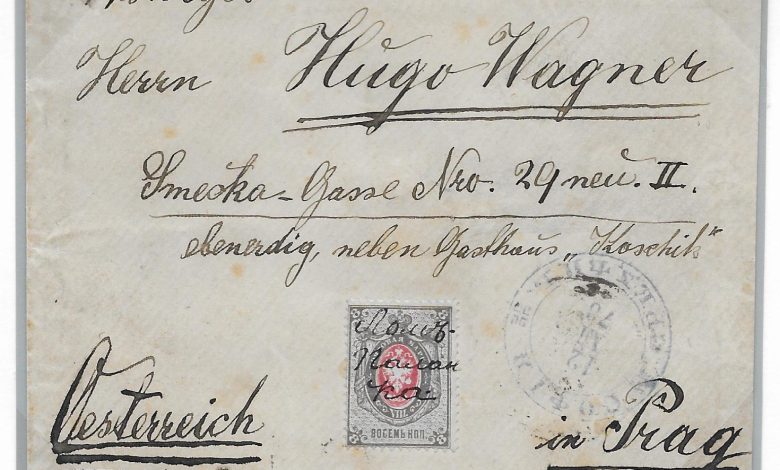 Herrn Hugo Wagner
Smecka-Gasse Nro. 29 neu. II.
ebenerdig, neben Gasthaus „Koschik"
Ломъ-
Палан
ка
VIII
ВОСЕМЬ КОП.
Oesterreich in Prag